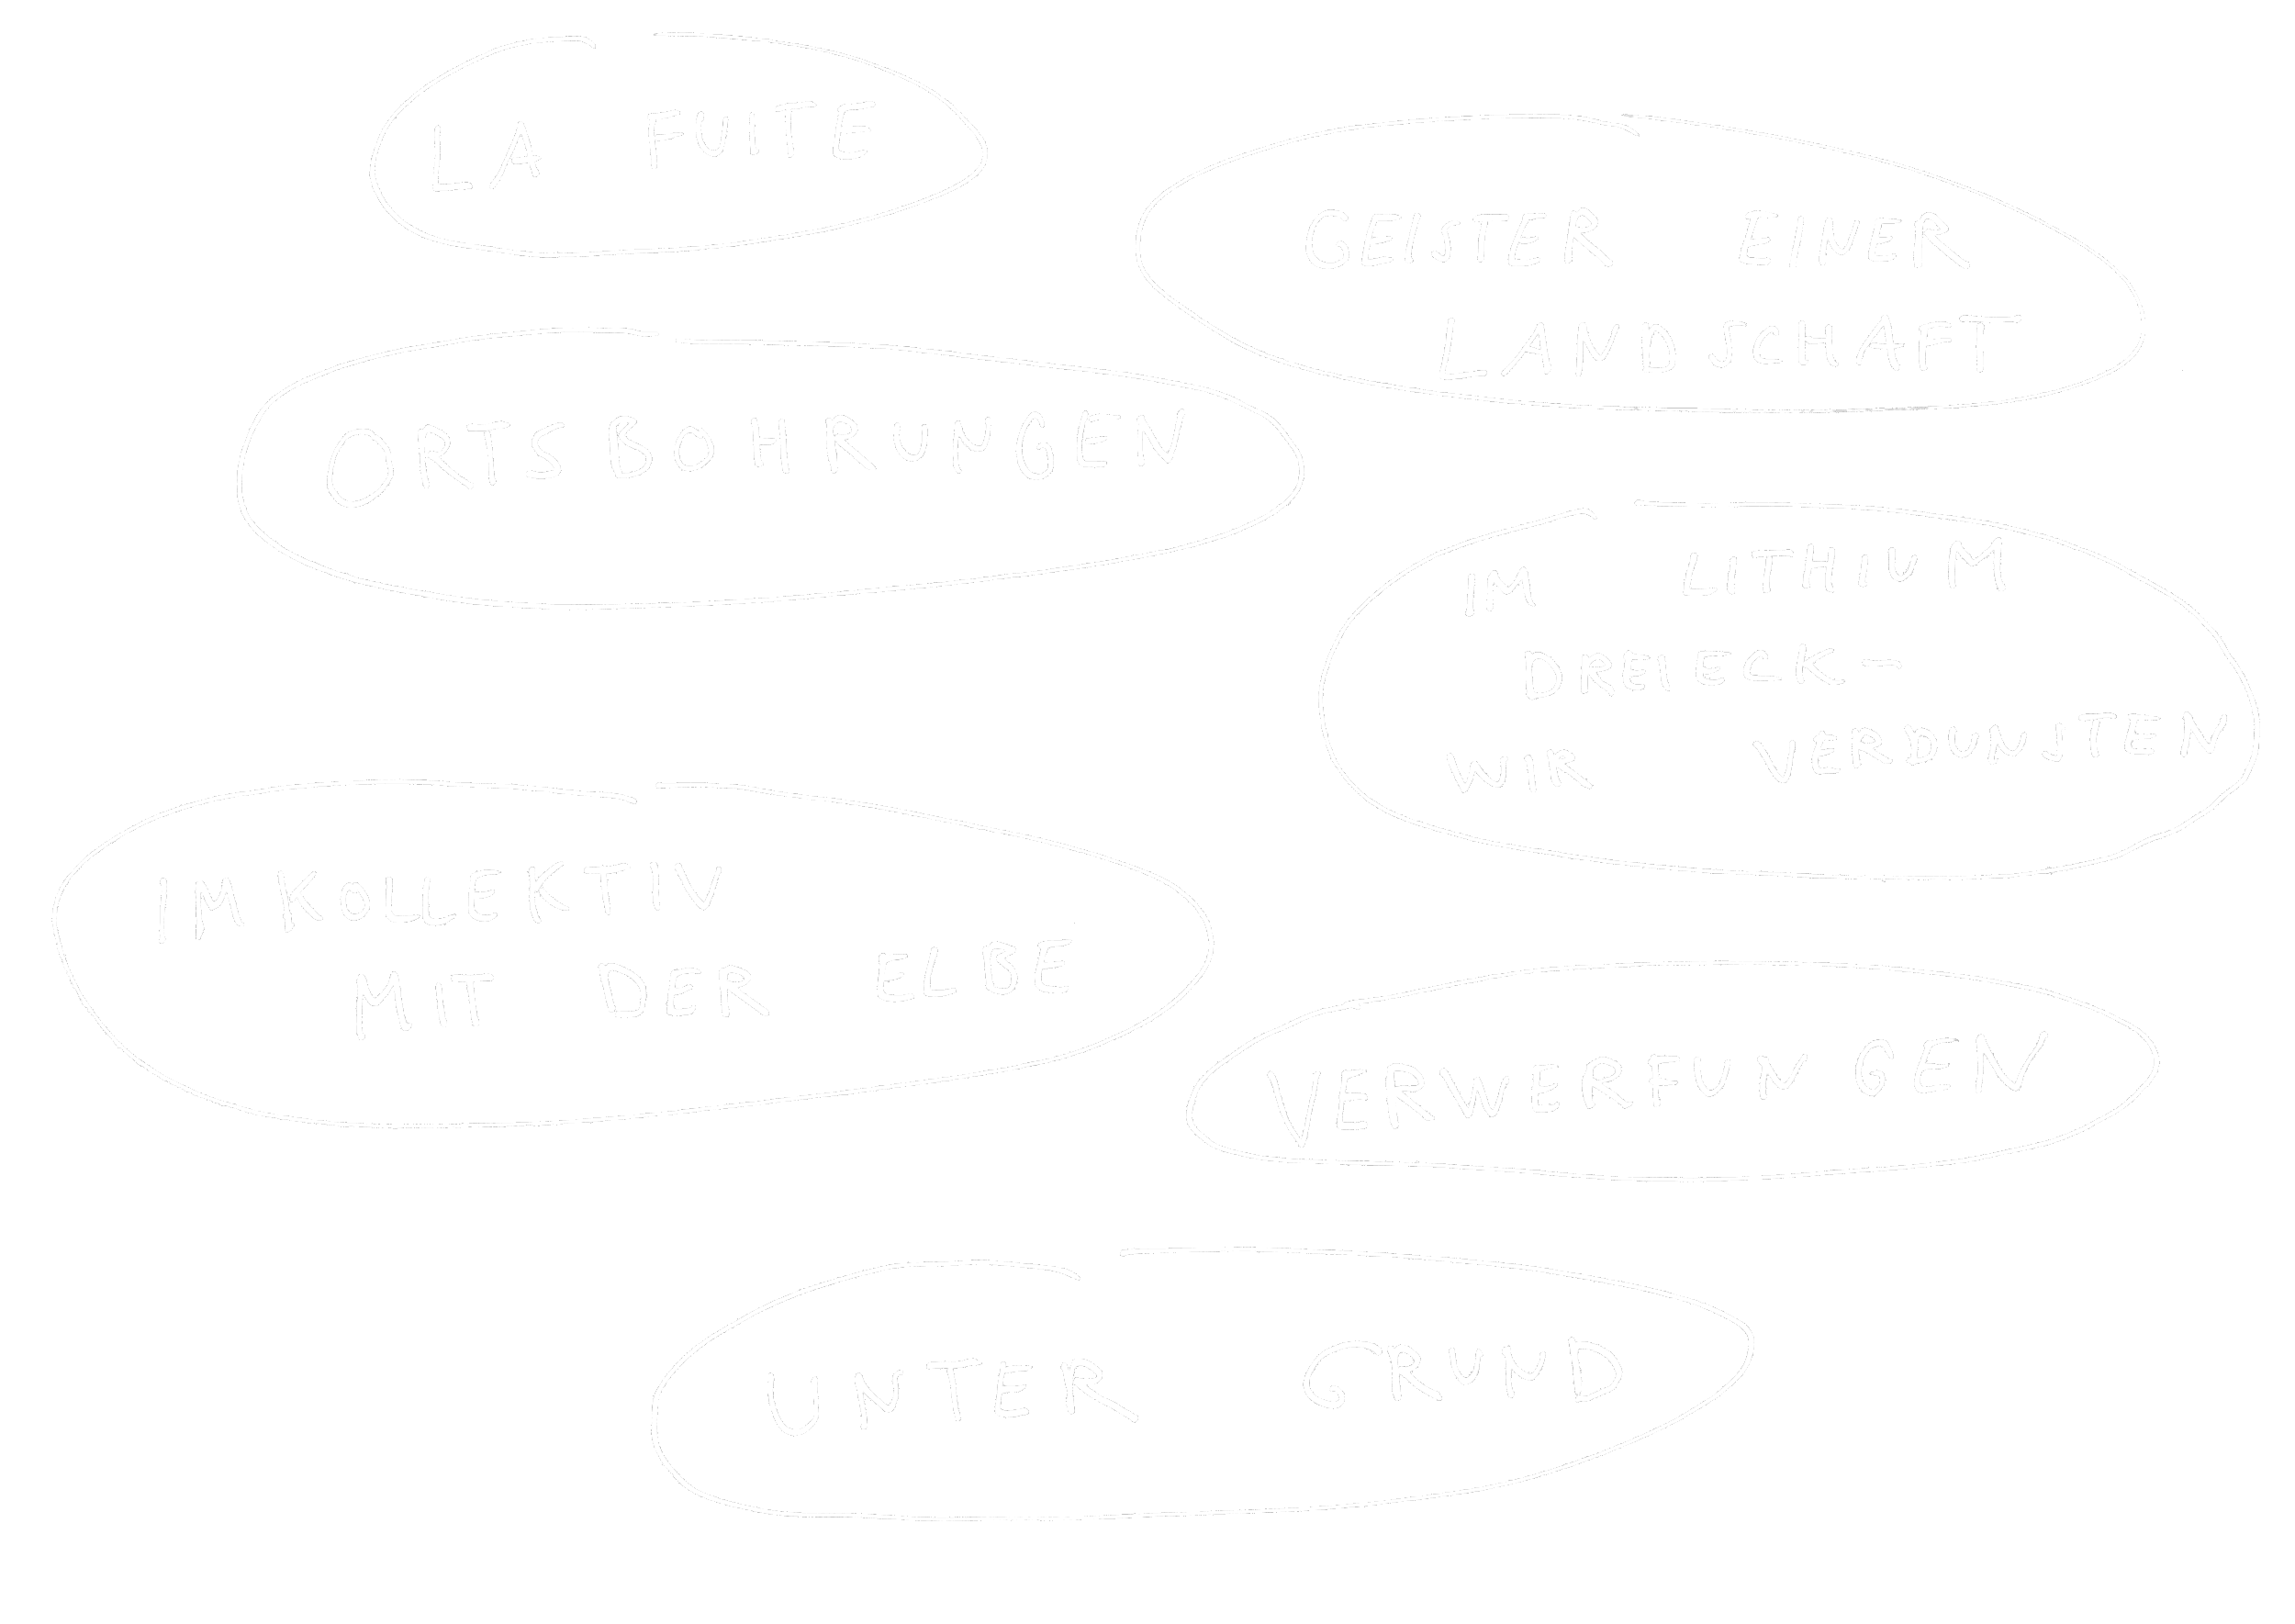 LA FUITE
GEISTER EINER
LANDSCHAFT
ORTSBOHRUNGEN
IM LITHIUM
DREIECK-
WIR VERDUNSTEN
IMKOLLEKTIV
MIT DER ELBE
VERWERFUNGEN
UNTER GRUND